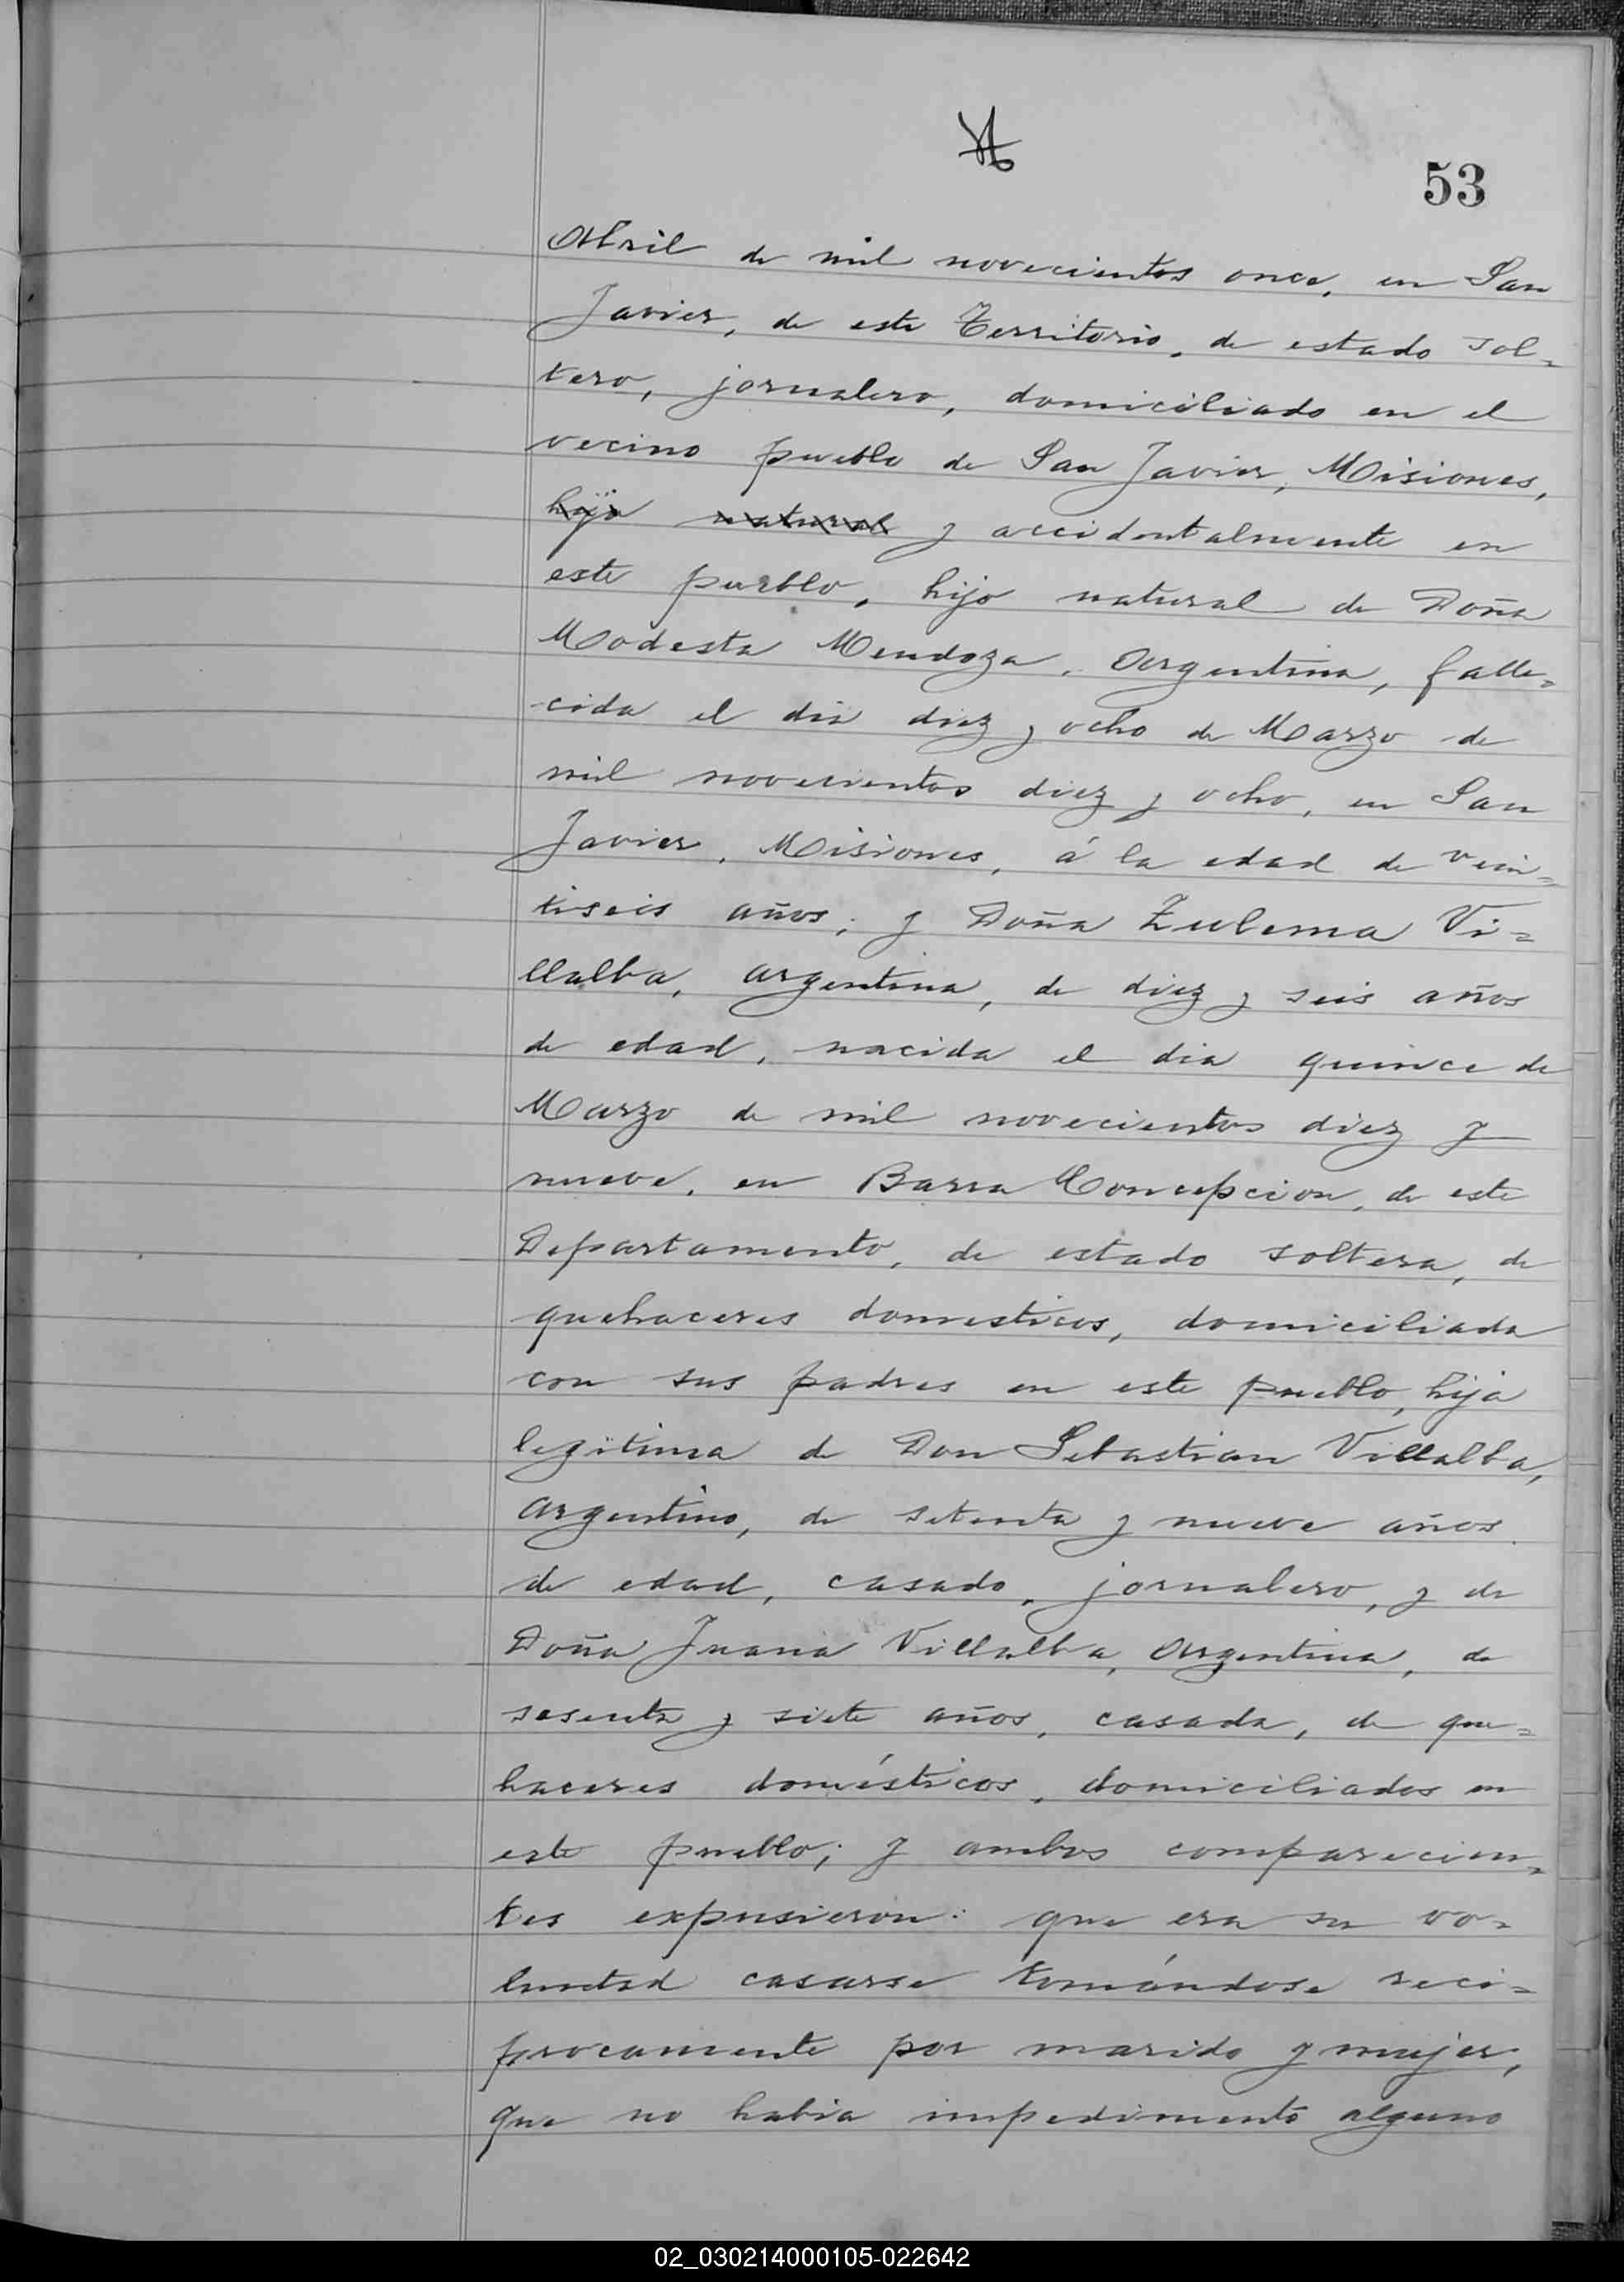 53
Abril de mil novecientos once, en San
Javier, de este Territorio, de estado sol=
tero, jornalero, domiciliado en el
vecino pueblo de San Javier, Misiones,
hijo natural y accidentalmente en
este pueblo, hijo natural de Doña
Modesta Mendoza, Argentina, falle=
cida el dia diez y ocho de Marzo de
mil novecientos diez y ocho, en San
Javier, Misiones, á la edad de vein=
tiseis años; y Doña Zulema Vi=
llalba, argentina, de diez y seis años
de edad, nacida el dia quince de
Marzo de mil novecientos diez y
nueve, en Barra Concepcion, de este
Departamento, de estado soltera, de
quehaceres domesticos, domiciliada
con sus padres en este pueblo, hija
legitima de Don Sebastian Villalba,
argentino, de setenta y nueve años
de edad, casado, jornalero, y de
Doña Juana Villalba, Argentina, de
sesenta y siete años, casada, de que=
haceres domésticos, domiciliados en
este pueblo; y ambos comparecien=
tes expusieron: que era su vo=
luntad casarse tomándose reci=
procamente por marido y mujer,
que no habia impedimento alguno
02_030214000105-022642